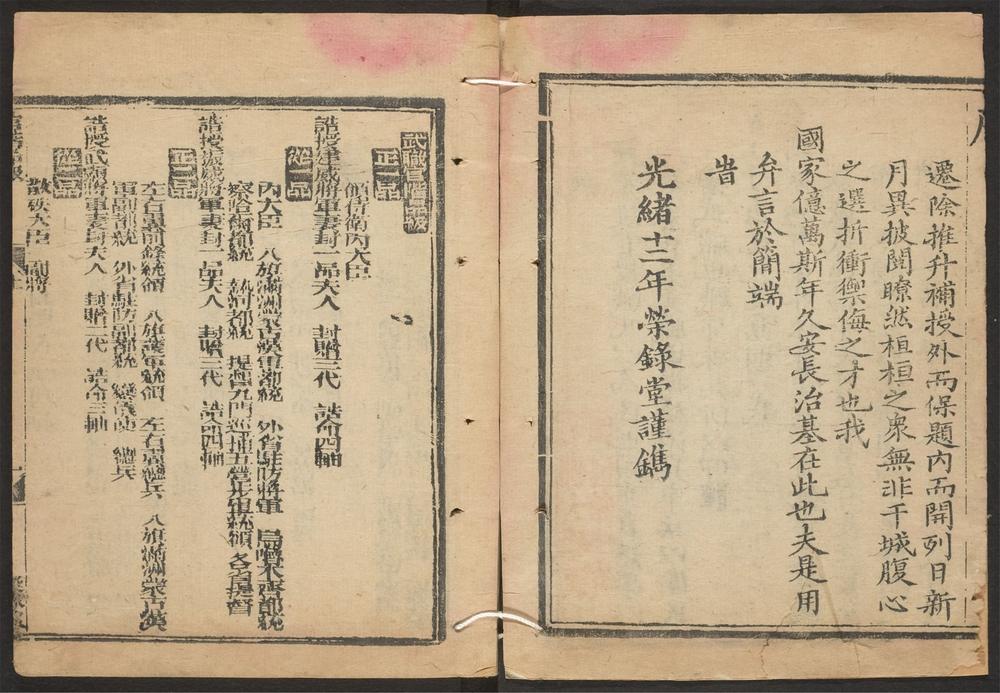 遷除推升補授外而保題內而開列日新
月異披閱瞭然桓桓之眾無非干城腹心
之選折衝禦侮之才也我
國家億萬斯年久安長治基在此也夫是用
弁言於簡端
旹
光緒十二年榮錄堂謹鐫
武職官階品級
正一品
領侍衛內大臣
誥授建威將軍妻封一品夫人 封贈三代 誥命四軸
從一品
內大臣 八旗滿洲蒙古漢軍都統 外省駐防將軍 烏嚕木齊都統
察哈爾都統 熱河都統 提督九門巡捕五營步軍統領 各省提督
誥授振威將軍妻封一品夫人 封贈三代 誥命四軸
正二品
左右翼前鋒統領 八旗護軍統領 左右翼總兵 八旗滿洲蒙古漢
軍副都統 外省駐防副都統 鑾儀使 總兵
誥授武顯將軍妻封夫人 封贈二代 誥命三軸
從二品
散秩大臣 副將